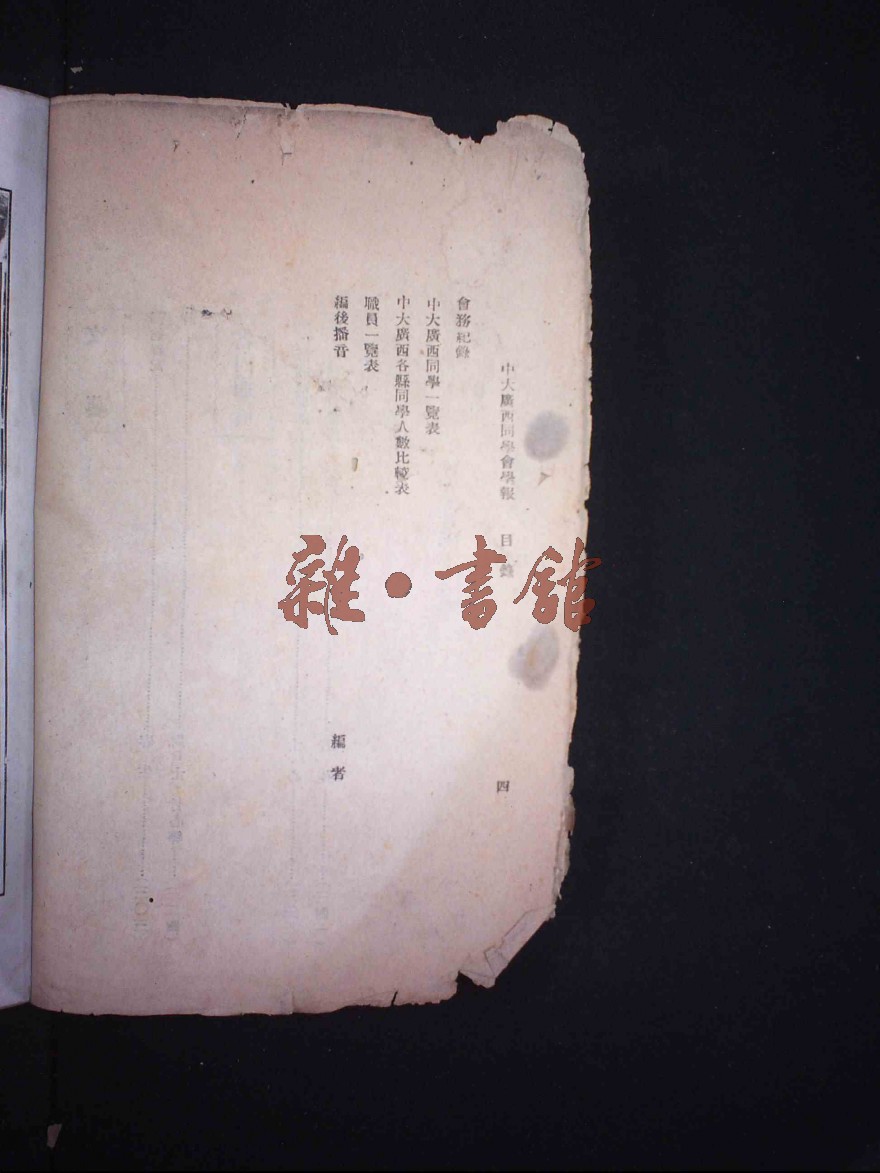 中大廣西同學會學報　目錄　四
會務紀錄
中大廣西同學一覽表
中大廣西各縣同學人數比較表
職員一覽表
編後播音　編者
雜·書館